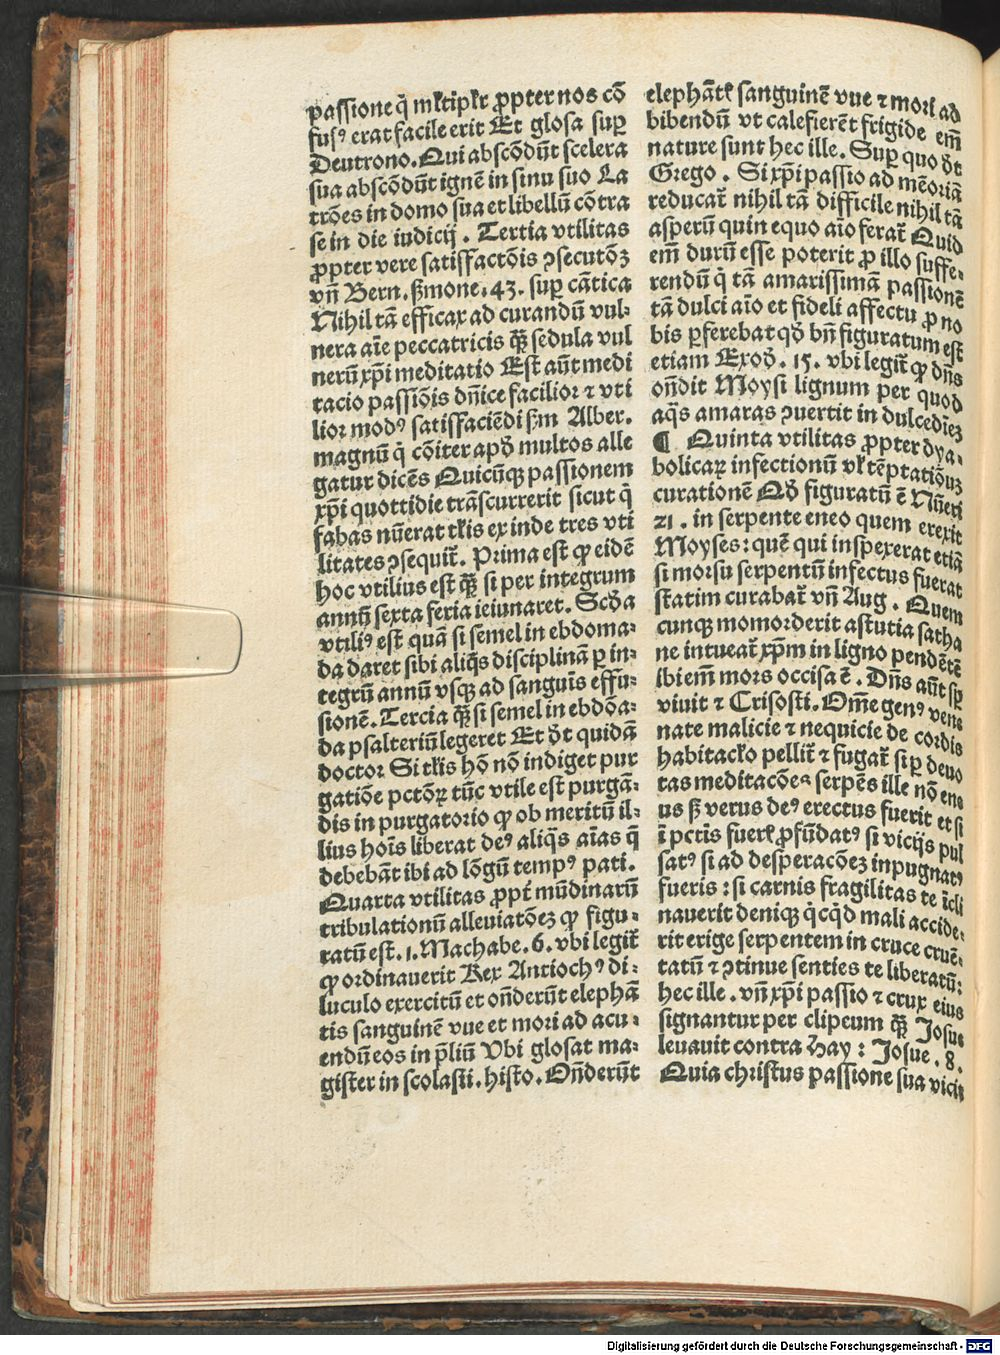 passione q̇ mĺtipĺr ꝓpter nos cō
fusꝰ erat facile erit Et glosa suꝑ
Deutrono. Qui abscōdūt scelera
sua abscōdūt ignē in sinu suo La
trōes in domo sua et libellū cōtra
se in die iudicij. Tertia vtilitas
ꝓpter vere satisfactōis ꝯsecutōꝫ
vn̄ Bern. s̄mone. 43. suꝑ cātica
Nihil tā efficax ad curandū vul⸗
nera aīe peccatricis qꝫ̄ sedula vul
nerū xp̄i meditatio Est aūt medi
tacio passiōis dn̄ice facilior ⁊ vti
lior modꝰ satisfaciēdi s̄m Alber.
magnū q̇ cōiter apd̄ multos alle
gatur dicēs Quicūqꝫ passionem
xp̄i quottidie trāscurrerit sicut q̇
fabas nūerat tĺis ex inde tres vti
litates ꝯsequit̄. Prima est ꝙ eidē
hoc vtilius est qꝫ̄ si per integrum
annū sexta feria ieiunaret. Scd̄a
vtiliꝰ est quā si semel in ebdoma⸗
da daret sibi aliq̄s disciplinā ꝑ in⸗
tegrū annū vsqꝫ ad sanguīs effu⸗
sionē. Tercia qꝫ̄ si semel in ebdōa⸗
da psalteriū legeret Et d̄t quidā
doctor Si tĺis hō nō indiget pur
gatiōe pctōꝝ tūc vtile est purgā⸗
dis in purgatorio ꝙ ob meritū il⸗
lius hoīs liberat deꝰ aliq̄s aīas q̄
debebāt ibi ad lōgū tempꝰ pati.
Quarta vtilitas ꝓpt̄ mūdinarū
tribulationū alleuiatōeꝫ ꝙ figu⸗
ratū est. 1. Machabe. 6. vbi legit̄
ꝙ ordinauerit Rex Antiochꝰ di⸗
luculo exercitū et on̄derūt elephā
tis sanguinē vue et mori ad acu⸗
endū eos in p̄liū Vbi glosat ma⸗
gister in scolasti. histo. On̄derūt
elephātĺ sanguinē vue ⁊ mori ad
bibendū vt calefierēt frigide em̄
nature sunt hec ille. Suꝑ quo d̄t
Grego. Si xp̄i passio ad mēoriā
reducat̄ nihil tā difficile nihil tā
asperū quin equo aīo ferat̄ Quid
em̄ durū esse poterit ꝓ illo suffe⸗
rendū q̇ tā amarissimā passionē
tā dulci aīo et fideli affectu ꝓ no
bis ꝑferebat qd̄ bn̄ figuratum est
etiam Exod̄. 15. vbi legit̄ ꝙ dn̄s
on̄dit Moysi lignum per quod
aq̄s amaras ꝯuertit in dulcedīeꝫ
¶ Quinta vtilitas ꝓpter dya⸗
bolicaꝝ infectionū vĺ tēptatiōuꝫ
curationē Qd̄ figuratū ē Nūeri
21. in serpente eneo quem erexit
Moyses: quē qui inspexerat etiā
si morsu serpentū infectus fuerat
statim curabat̄ vn̄ Aug. Quem
cunqꝫ momorderit astutia satha
ne intueat̄ xp̄m in ligno pendētē
Ibi em̄ mors occisa ē. Dn̄s aūt sꝑ
viuit ⁊ Crisosti. Om̄e genꝰ vene
nate malicie ⁊ nequicie de cordis
habitacĺo pellit̄ ⁊ fugat̄ si ꝑ deuo
tas meditacōes serpēs ille nō ene
us s̄ verus deꝰ erectus fuerit et si
ī pctīs fuerĺ ꝓfūdatꝰ si vicijs pul
satꝰ si ad desperacōeꝫ inpugnatꝰ
fueris: si carnis fragilitas te īcli
nauerit deniqꝫ q̇cq̇d mali accide⸗
rit erige serpentem in cruce cruē⸗
tatū ⁊ ꝯtinue senties te liberatū:
hec ille. vn̄ xp̄i passio ⁊ crux eius
signantur per clipeum qꝫ̄ Josue
leuauit contra Hay: Josue. 8.
Quia christus passione sua vicit
Digitalisierung gefördert durch die Deutsche Forschungsgemeinschaft - DFG